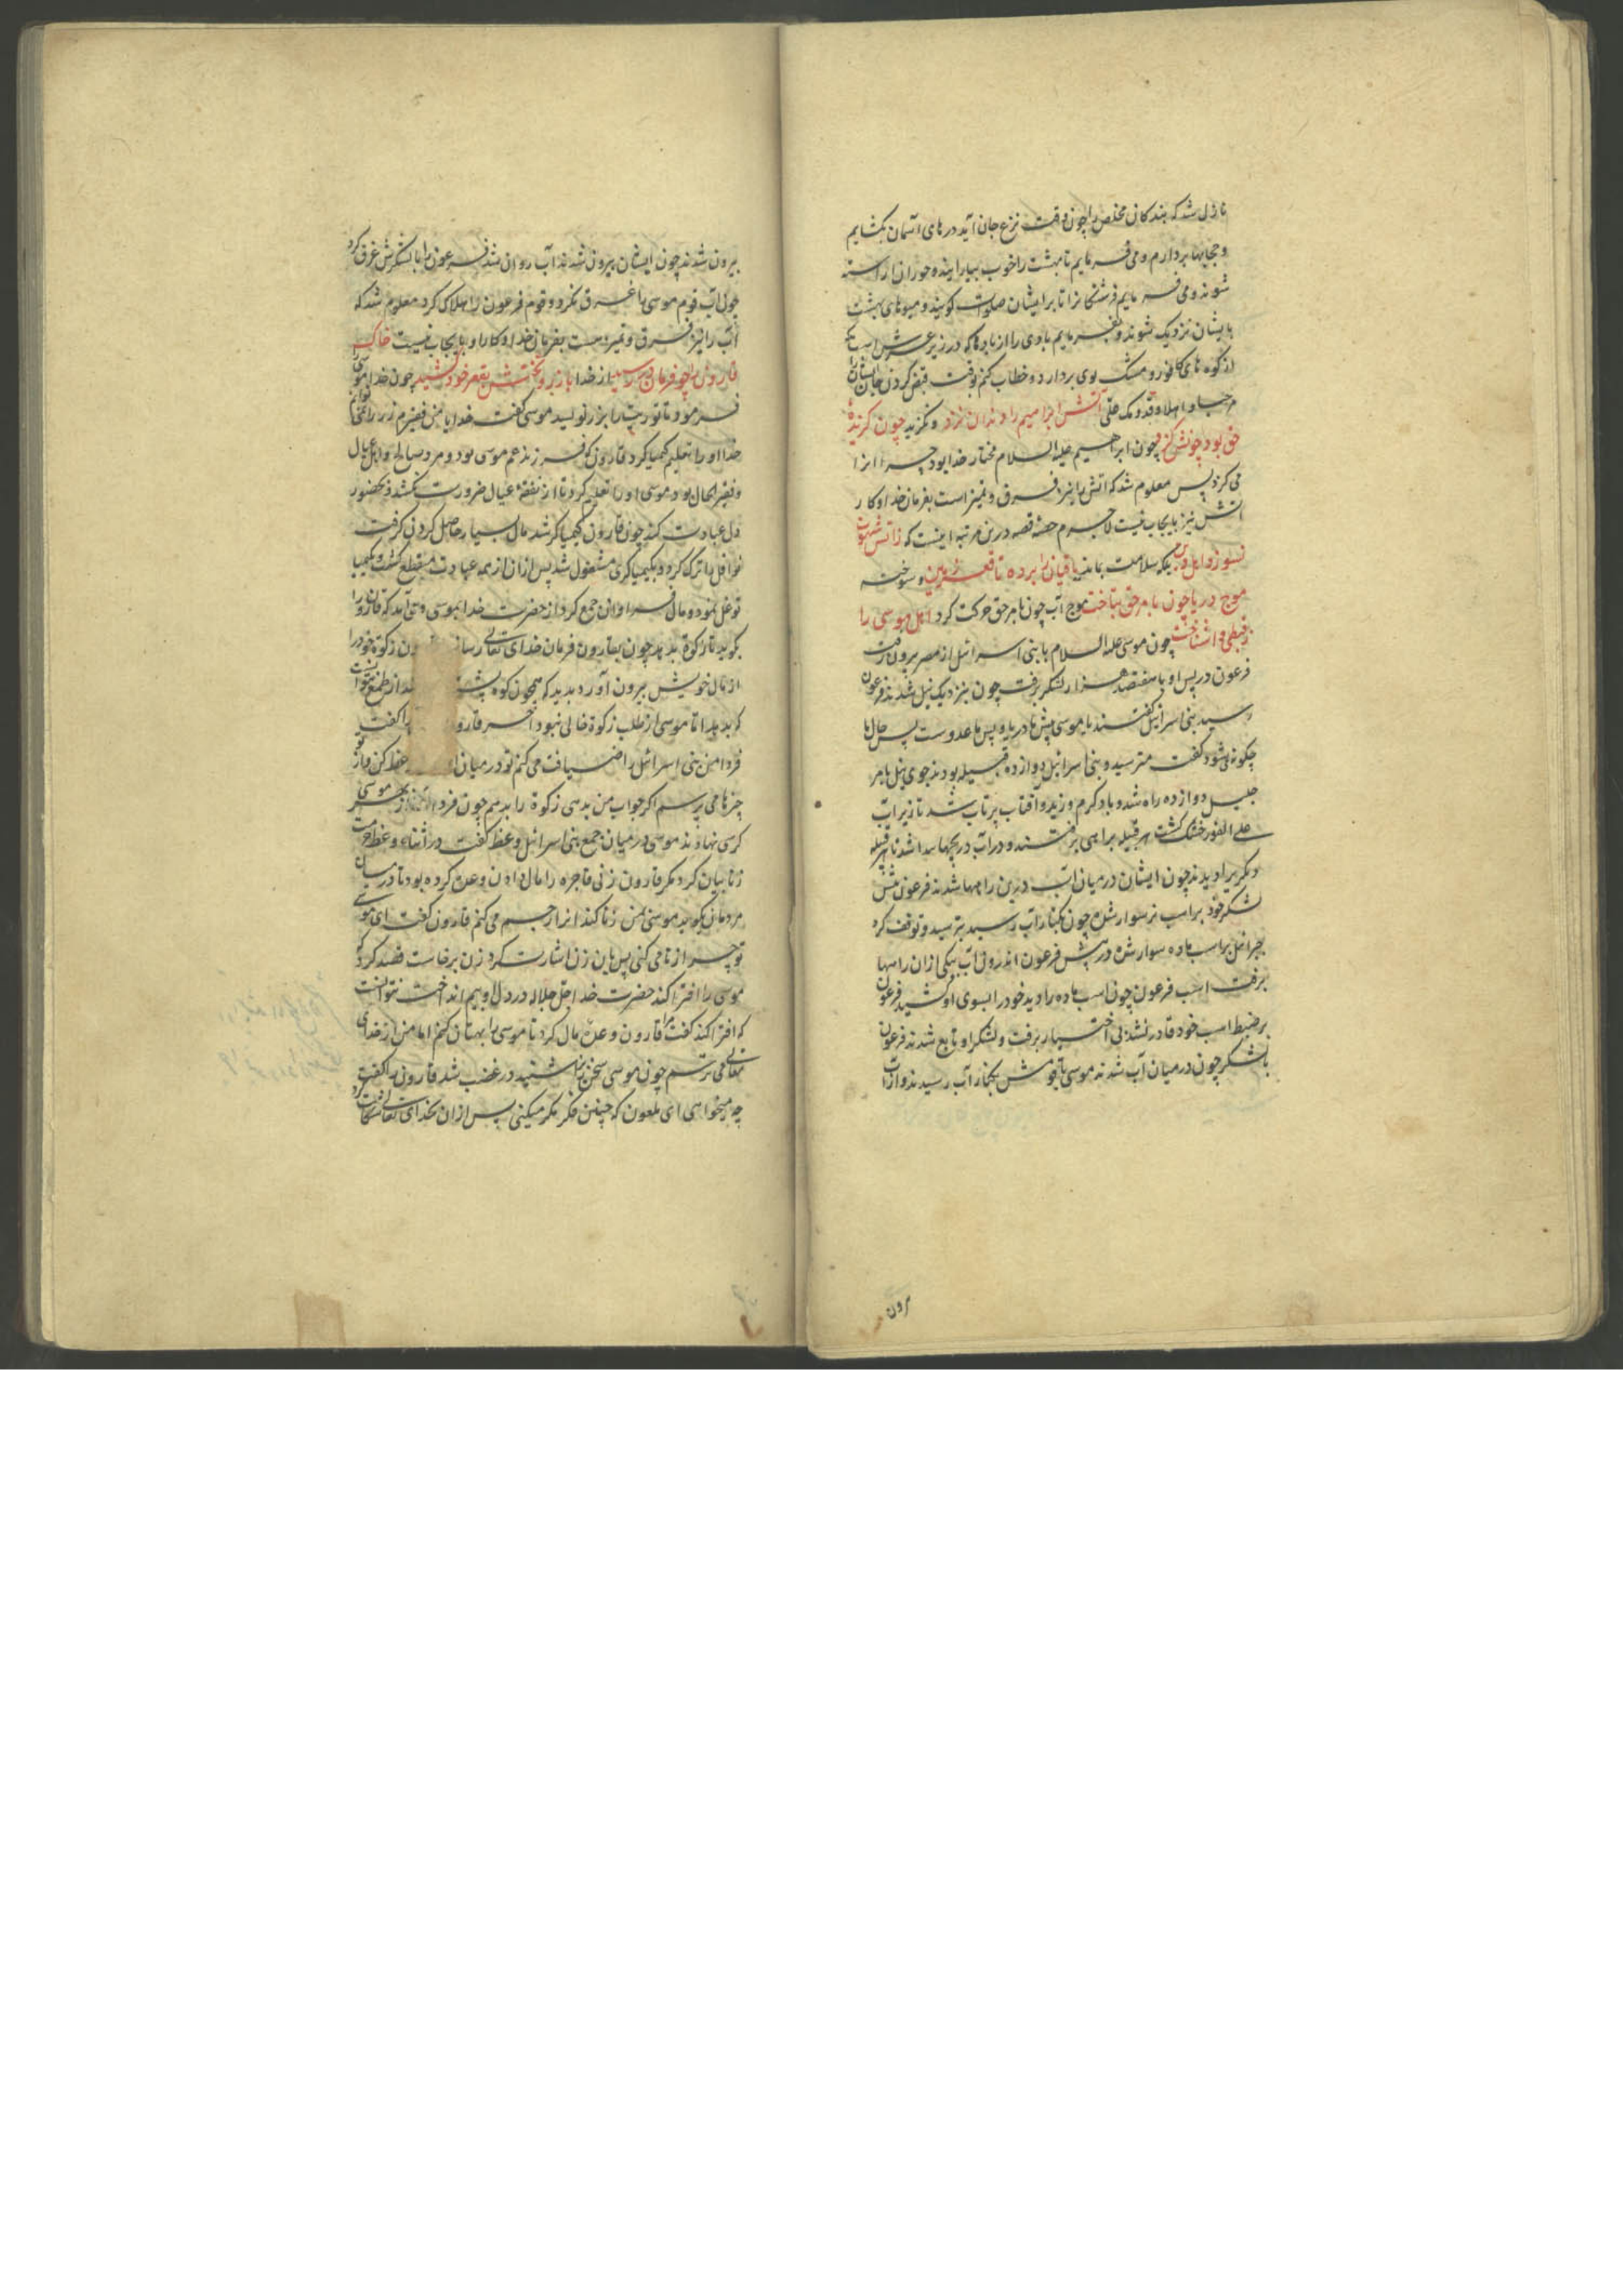 نازل شد که بندکان مخلص را چون وقت نزع جان آید درهای آسمان بکشایم
و حجابها بردارم و می فرمایم تا بهشت را خوب بیارایند و حوران اراسته
شوند و می فرمایم فرشتکانرا تا بر ایشان صلوات کویند و میوهای بهشت
بایشان نزدیک شوند و بفرمایم بادی را از بادها که در زیر عرش است
از کوه های کافور و مشک بوی بردارد و خطاب کنم بوقت قبض کردن جان ایشان
مرحبا و اهلا و قدومک علی آتش ابراهیم را دندان نزد و نکزید چون کزیده
حق بود چونش کزد چون ابراهیم علیه السلام مختار خدا بود چرا انرا
می کزد پس معلوم شد که اتش را نیز فرق و تمیز است بفرمان خدا و کار
اتش نیز بایجاب نیست لاجرم حصه قصه درین مرتبه اینست که زاتش شهوت
نسوزد اهل دین بلکه سلامت بماند باقیان را برده تا قعر زمین و سوخته
موج دریا چون بامر حق بتاخت موج آب چون بامر حق حرکت کرد اهل موسی را
ز قبطی وا شناخت چون موسی علیه السلام با بنی اسرائل از مصر بیرون رفت
فرعون در پس او با هفتصد هزار لشکر برفت چون بنزدیک نیل شدند و فرعون
رسید بنی اسرائیل کفتند یا موسی پیش ما دریا و پس ما عدوست پس حال ما
چکونه شود کفت مترسید و بنی اسرائیل دوازده قبیله بودند جوی نیل بامر
جلیل دوازده راه شد و باد کرم وزید و آفتاب پرتاب شد تا زیر آب
علی الفور خشک کشت هر قبیله براهی برفتند و در آب دریچها پیدا شد تا هر قبیله
دیکریرا دیدند چون ایشان در میان آب درین راهها شدند فرعون پیش
لشکر خود بر اسب نر سوار شده چون بکنار آب رسید بترسید و توقف کرد
جبرائیل بر اسب ماده سوار شده در پیش فرعون اندرون آب بیکی از ان راهها
برفت اسب فرعون چون اسب ماده را دید خود را بسوی او کشید فرعون
بر ضبط اسب خود قادر نشد بی اختیار برفت و لشکر او تابع شدند فرعون
با لشکر چون در میان آب شدند موسی با قومش بکنار آب رسیدند و از آب
برون
بیرون شدند چون ایشان بیرون شدند آب روان شد فرعون را با لشکرش غرق کرد
چون آب قوم موسی را غرق نکرد و قوم فرعون را هلاک کرد معلوم شد که
آب را نیز فرق و تمیز هست بفرمان خدا و کار او بایجاب نیست خاک
قارون را چو فرمان در رسید از خدا با زر و تختش بقعر خود کشید چون خدا موسی را
فرمود تا توریت را بزر نویسد موسی کفت خدایا من فقیرم زر را نمی توانم
خدا او را تعلیم کیمیا کرد قارون که فرزند عم موسی بود و مرد صالح و اهل عیال
و فقیر الحال بود موسی او را تعلیم کرد تا از نفقهٔ عیال ضرورت نکشد و بحضور
دل عبادت کند چون قارون کیمیاکر شد مال بسیار حاصل کردن کرفت
نوافل را ترک کرد و بکیمیاکری مشغول شد پس از ان از همه عبادت منقطع کشت و بکیمیا
توغل نمود و مال فراوان جمع کرد از حضرت خدا بموسی وحی آمد که قارون را
بکوید تا زکوة بدهد چون بقارون فرمان خدای تعالی رسانید قارون زکوة خود را
از مال خویش بیرون آورد بدید که همچون کوه از طمع نتوانست
که بدهد اما موسی از طلب زکوة خالی نبود آخر قارون را کفت
فردا من بنی اسرائل را ضیافت می کنم تو در میان وعظ کن و از تو
چیزها می پرسم اکر جواب من بدهی زکوة را بدهم چون فردا بهر موسی
کرسی نهادند موسی در میان جمع بنی اسرائل وعظ کفت در اثناء وعظ حرمت
زنا بیان کرد مکر قارون زنی فاجره را مال دادن وعده کرده بود تا در میان
مردمان بکوید موسی بمن زنا کند انرا رجم می کنم قارون کفت ای موسی
تو چرا زنا می کنی پس باین زن اشارت کرد زن برخاست قصد کرد که
موسی را افترا کند حضرت خدا جل جلاله در دل او بیم انداخت نتوانست
که افترا کند کفت مرا قارون وعدهٔ مال کرد تا موسی را بهتان کنم اما من از خدای
تعالی می ترسم چون موسی سخن زن شنید در غضب شد قارون را کفت
چه میخواهی ای ملعون که چنین فکر مکر میکنی پس از ان بخدای تعالی شکایت کرد